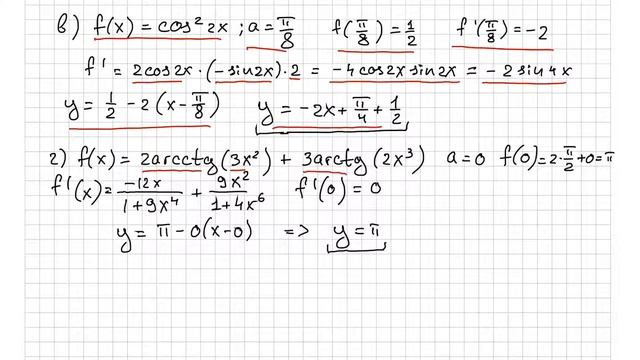 в) f(x) = cos² 2x ; a = π/8 f(π/8) = 1/2 f'(π/8) = -2
f' = 2cos2x · (-sin2x) · 2 = -4cos2x sin2x = -2sin4x
y = 1/2 - 2(x - π/8) y = -2x + π/4 + 1/2
г) f(x) = 2arcctg(3x²) + 3arctg(2x³) a = 0 f(0) = 2·π/2 + 0 = π
f'(x) = -12x/(1+9x⁴) + 9x²/(1+4x⁶) f'(0) = 0
y = π - 0(x-0) => y = π